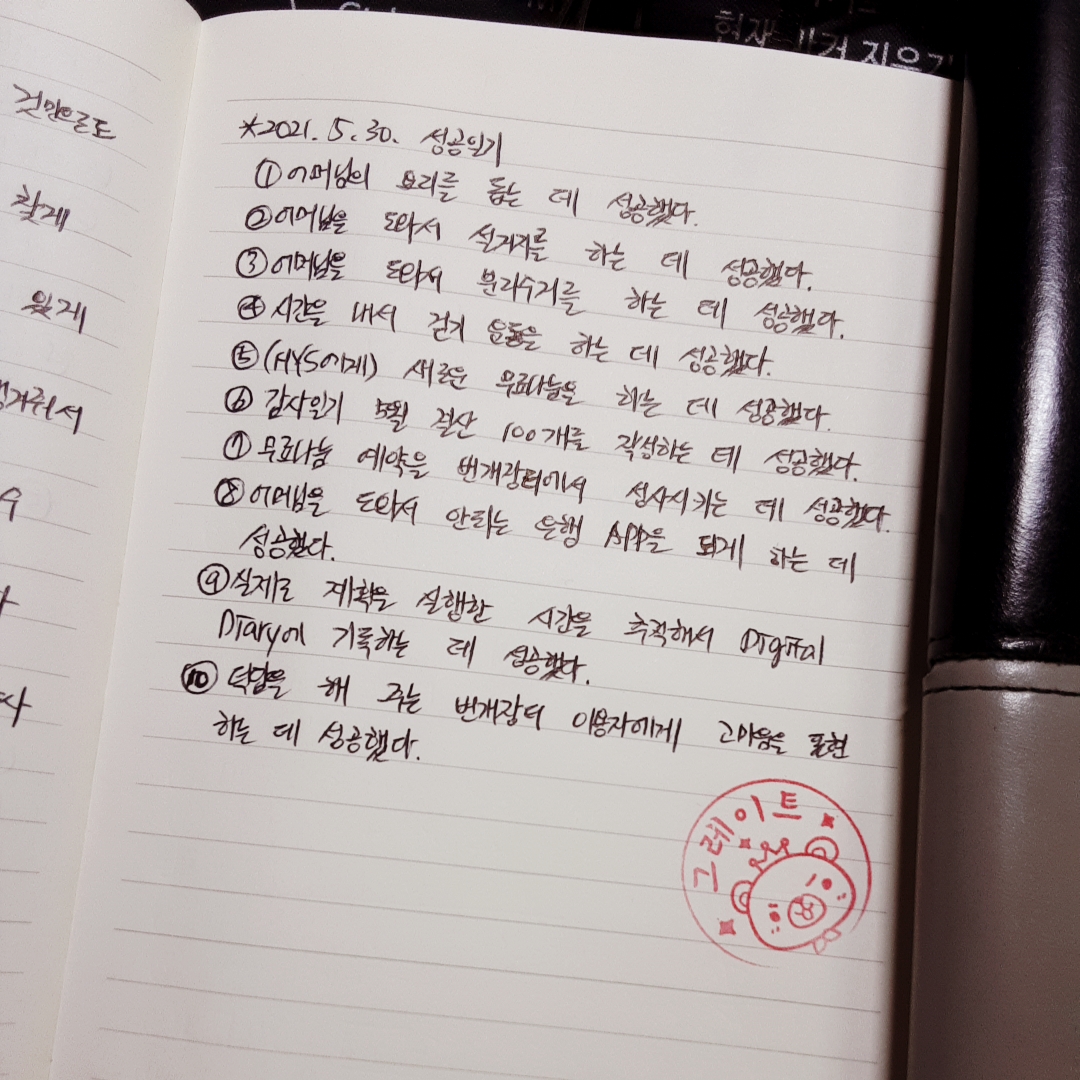 건만으로도
찾게
있게
수
사
현재
지우기
*2021. 5. 30. 성공일기
①어머님의 요리를 돕는 데 성공했다.
②어머님을 도와서 설거지를 하는 데 성공했다.
③어머님을 도와서 분리수거를 하는 데 성공했다.
④시간을 내서 걷기 운동을 하는 데 성공했다.
⑤(HYS에게) 새로운 무료나눔을 하는 데 성공했다.
⑥ 감사일기 5월 결산 100개를 작성하는 데 성공했다.
⑦ 무료나눔 예약을 번개장터에서 성사시키는 데 성공했다.
⑧어머님을 도와서 안되는 은행 APP을 되게 하는 데
성공했다.
⑨실제로 계획을 실행한 시간을 추적해서 Digital
Diary에 기록하는 데 성공했다.
⑩ 덕담을 해 주는 번개장터 이용자에게 고마움을 표현
하는 데 성공했다.
그레이트